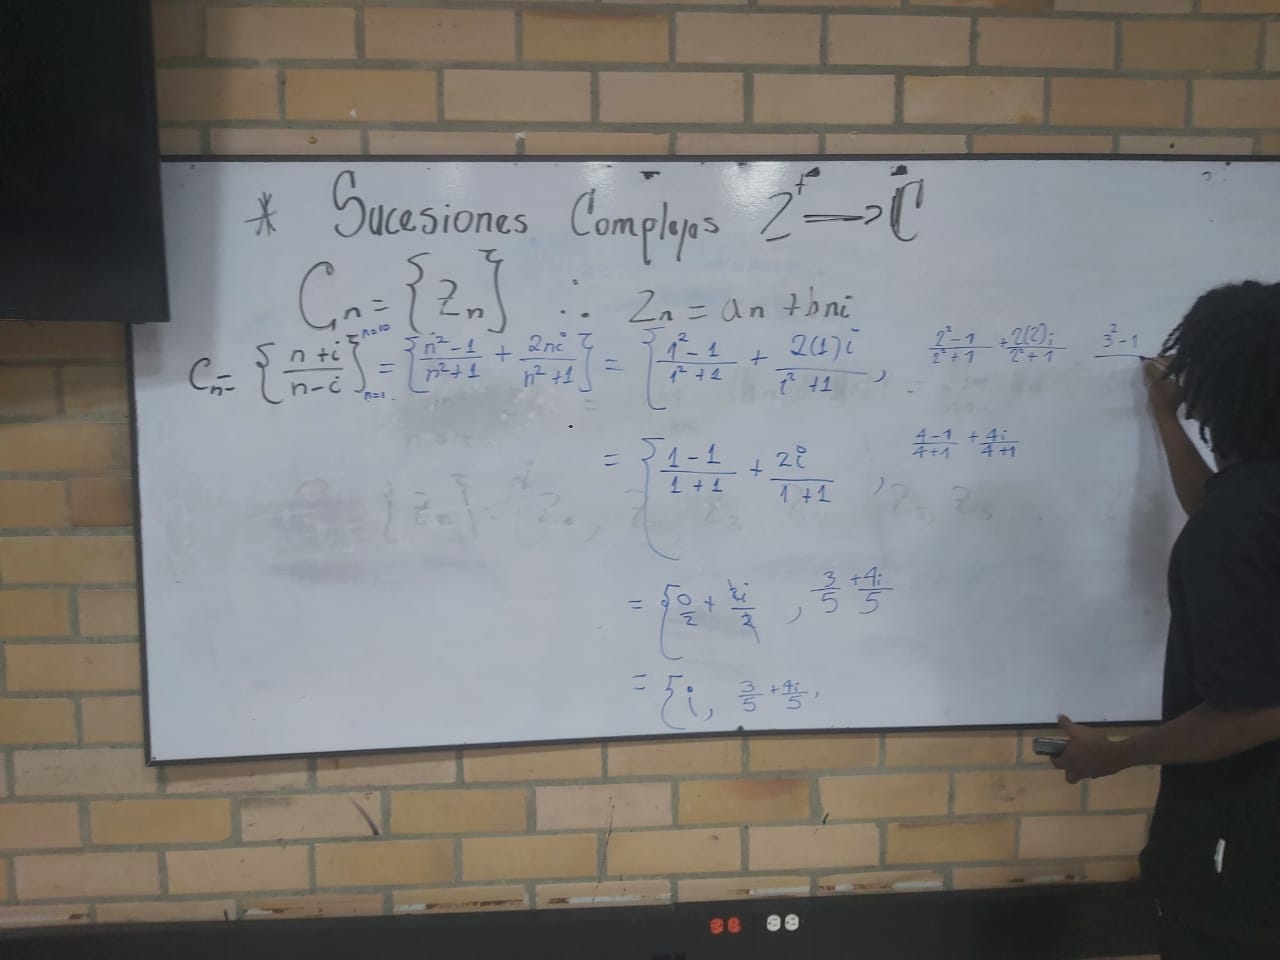 * Sucesiones Complejas Z⁺ → ℂ
Cn = {Zn} ∴ Zn = an + bni
Cn = {(n+i)/(n-i)}ⁿ⁼¹⁰ₙ₌₁ = {(n²-1)/(n²+1) + 2ni/(n²+1)} = {(1²-1)/(1²+1) + 2(1)i/(1²+1), (2²-1)/(2²+1) + 2(2)i/(2²+1) 3²-1
= {(1-1)/(1+1) + 2i/(1+1), (4-1)/(4+1) + 4i/(4+1)
= {0/2 + 2i/2, 3/5 + 4i/5
= {i, 3/5 + 4i/5,